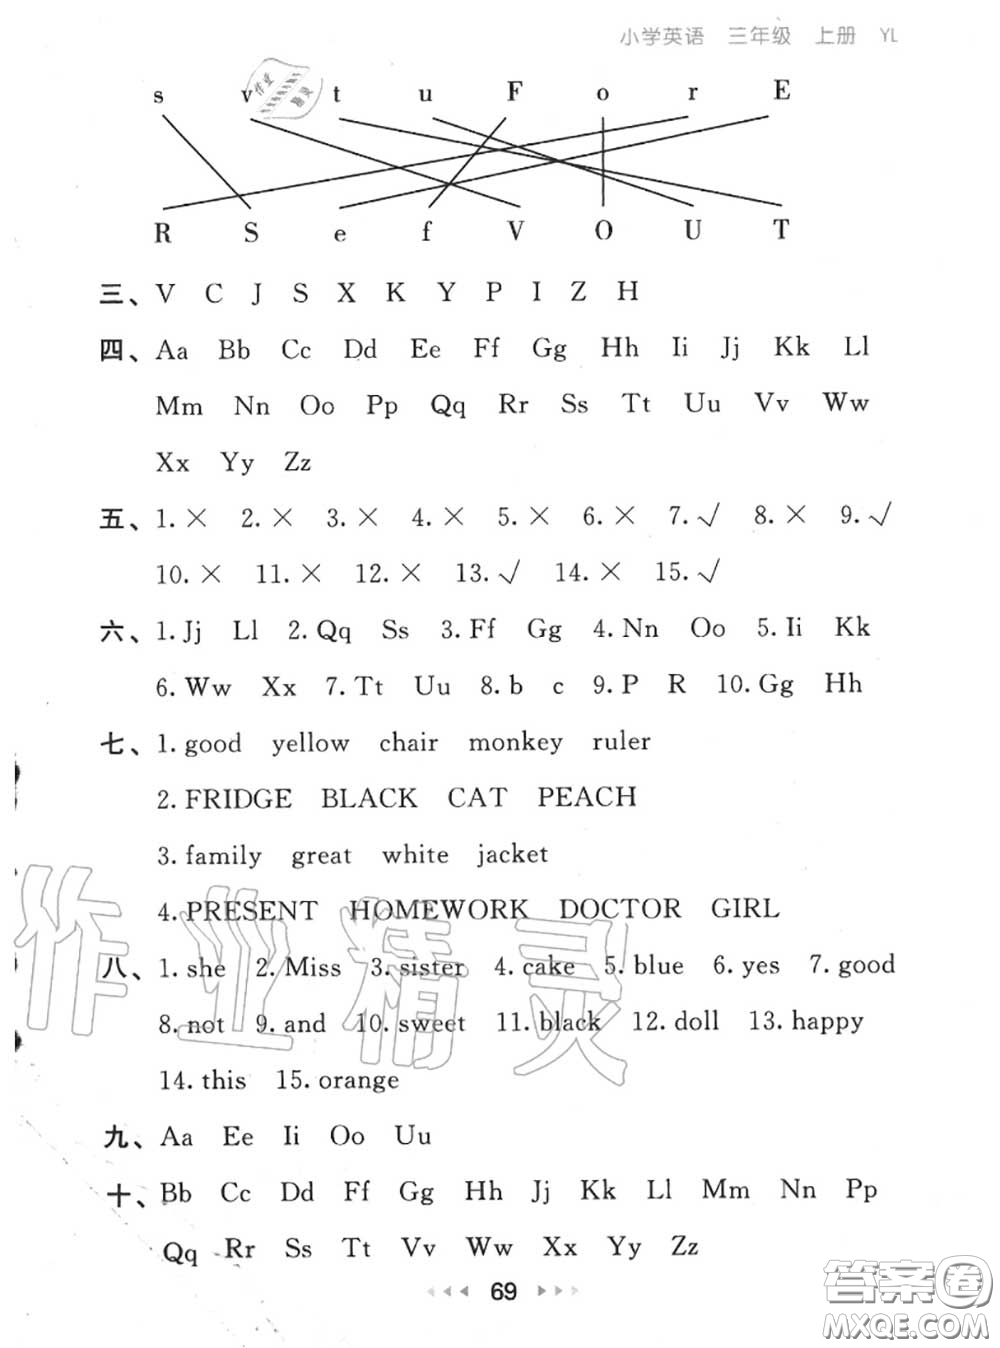 小学英语 三年级 上册 YL
s v t u F o r E
R S e f V O U T
三、V C J S X K Y P I Z H
四、Aa Bb Cc Dd Ee Ff Gg Hh Ii Jj Kk Ll
Mm Nn Oo Pp Qq Rr Ss Tt Uu Vv Ww
Xx Yy Zz
五、1. × 2. × 3. × 4. × 5. × 6. × 7. √ 8. × 9. √
10. × 11. × 12. × 13. √ 14. × 15. √
六、1. Jj Ll 2. Qq Ss 3. Ff Gg 4. Nn Oo 5. Ii Kk
6. Ww Xx 7. Tt Uu 8. b c 9. P R 10. Gg Hh
七、1. good yellow chair monkey ruler
2. FRIDGE BLACK CAT PEACH
3. family great white jacket
4. PRESENT HOMEWORK DOCTOR GIRL
八、1. she 2. Miss 3. sister 4. cake 5. blue 6. yes 7. good
8. not 9. and 10. sweet 11. black 12. doll 13. happy
14. this 15. orange
九、Aa Ee Ii Oo Uu
十、Bb Cc Dd Ff Gg Hh Jj Kk Ll Mm Nn Pp
Qq Rr Ss Tt Vv Ww Xx Yy Zz
69
作业精灵
答案圈
MXQE.COM